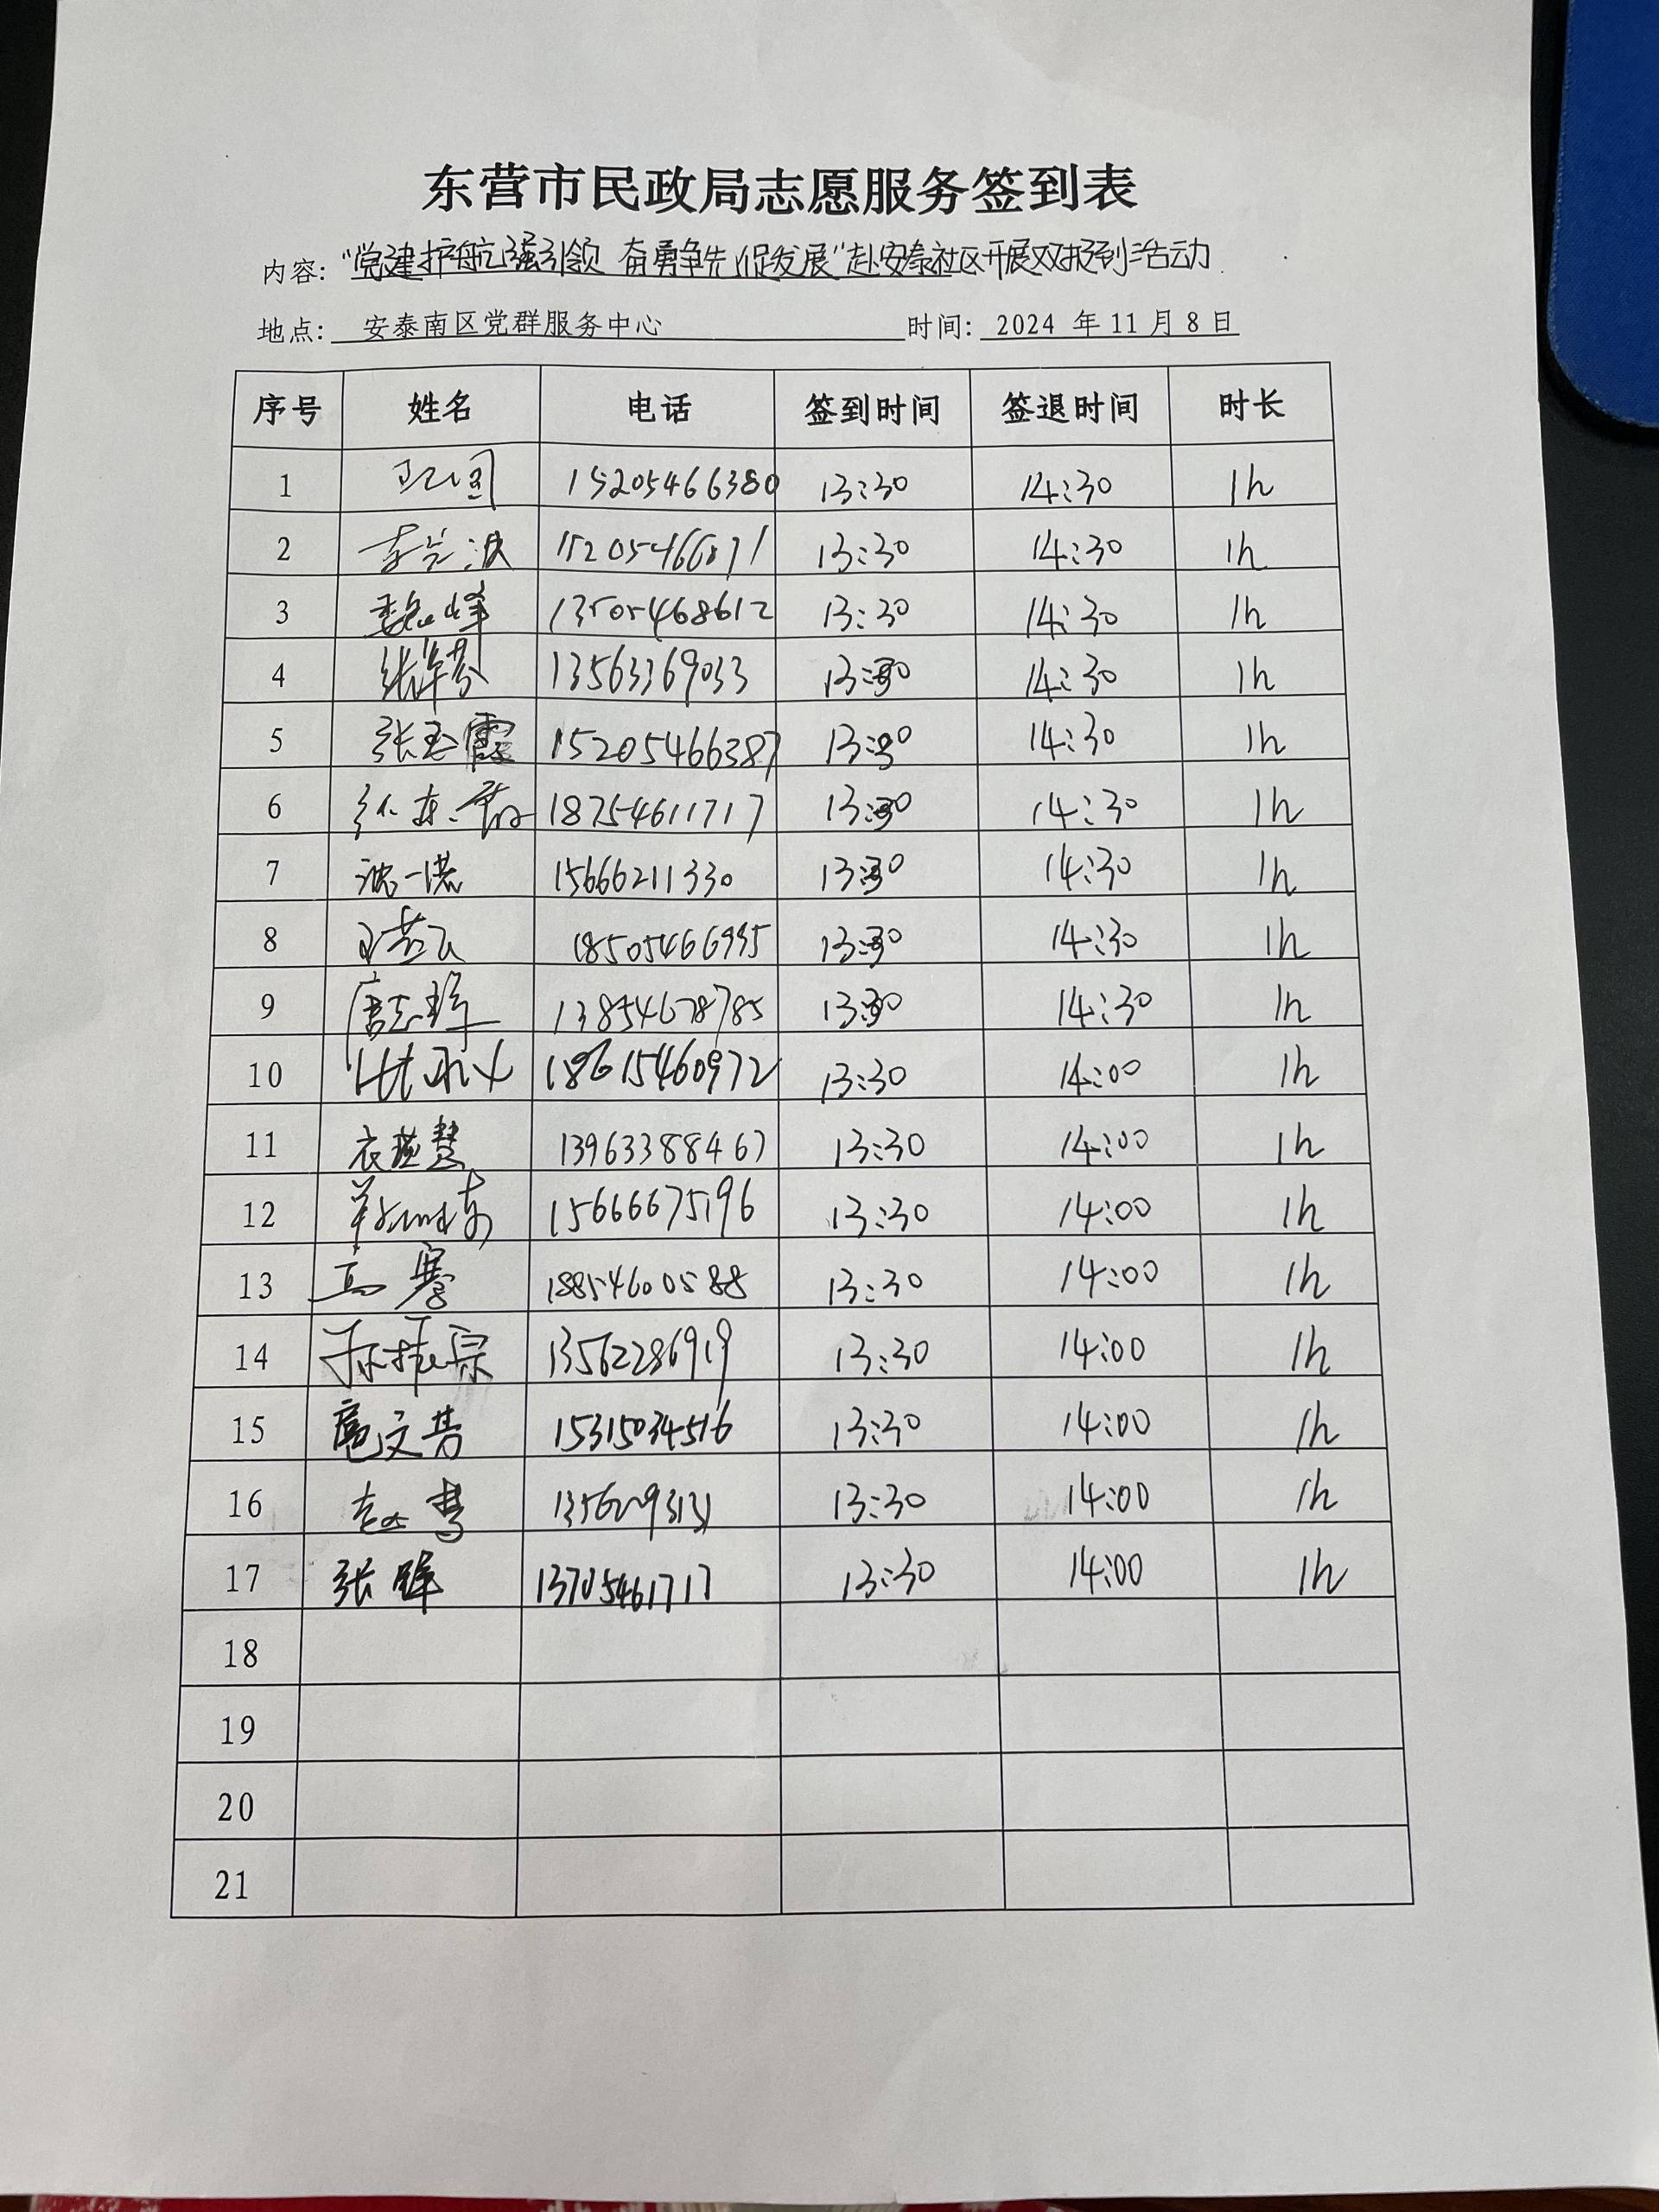 东营市民政局志愿服务签到表
内容: “党建护航强引领 奋勇争先促发展”赴安泰社区开展双报到活动
地点: 安泰南区党群服务中心 时间: 2024 年 11 月 8 日
序号 姓名 电话 签到时间 签退时间 时长
1 15205466380 13:30 14:30 1h
2 15205466071 13:30 14:30 1h
3 魏峰 13505468612 13:30 14:30 1h
4 13563369033 13:30 14:30 1h
5 张玉霞 15205466387 13:30 14:30 1h
6 18754611717 13:30 14:30 1h
7 沈一诺 15666211330 13:30 14:30 1h
8 18505466995 13:30 14:30 1h
9 13854678785 13:30 14:30 1h
10 18615460972 13:30 14:00 1h
11 衣燕慧 13963388467 13:30 14:00 1h
12 15666675196 13:30 14:00 1h
13 高骞 18854600588 13:30 14:00 1h
14 孙振宗 13562286919 13:30 14:00 1h
15 扈文昔 15315034516 13:30 14:00 1h
16 13:30 14:00 1h
17 张峰 13705461717 13:30 14:00 1h
18
19
20
21